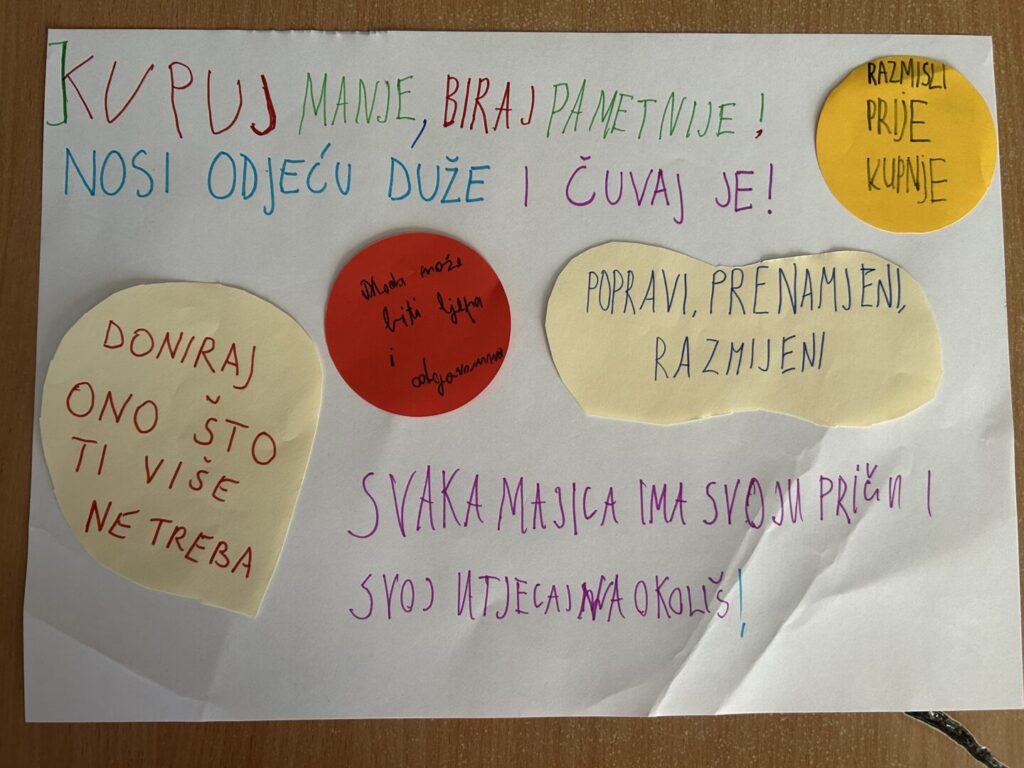 KUPUJ MANJE, BIRAJ PAMETNIJE!
NOSI ODJEĆU DUŽE I ČUVAJ JE!
RAZMISLI
PRIJE
KUPNJE
DONIRAJ
ONO ŠTO
TI VIŠE
NE TREBA
Moda može
biti ljepa
i
POPRAVI, PRENAMJENI,
RAZMIJENI
SVAKA MAJICA IMA SVOJU PRIČU I
SVOJ UTJECAJ NA OKOLIŠ!